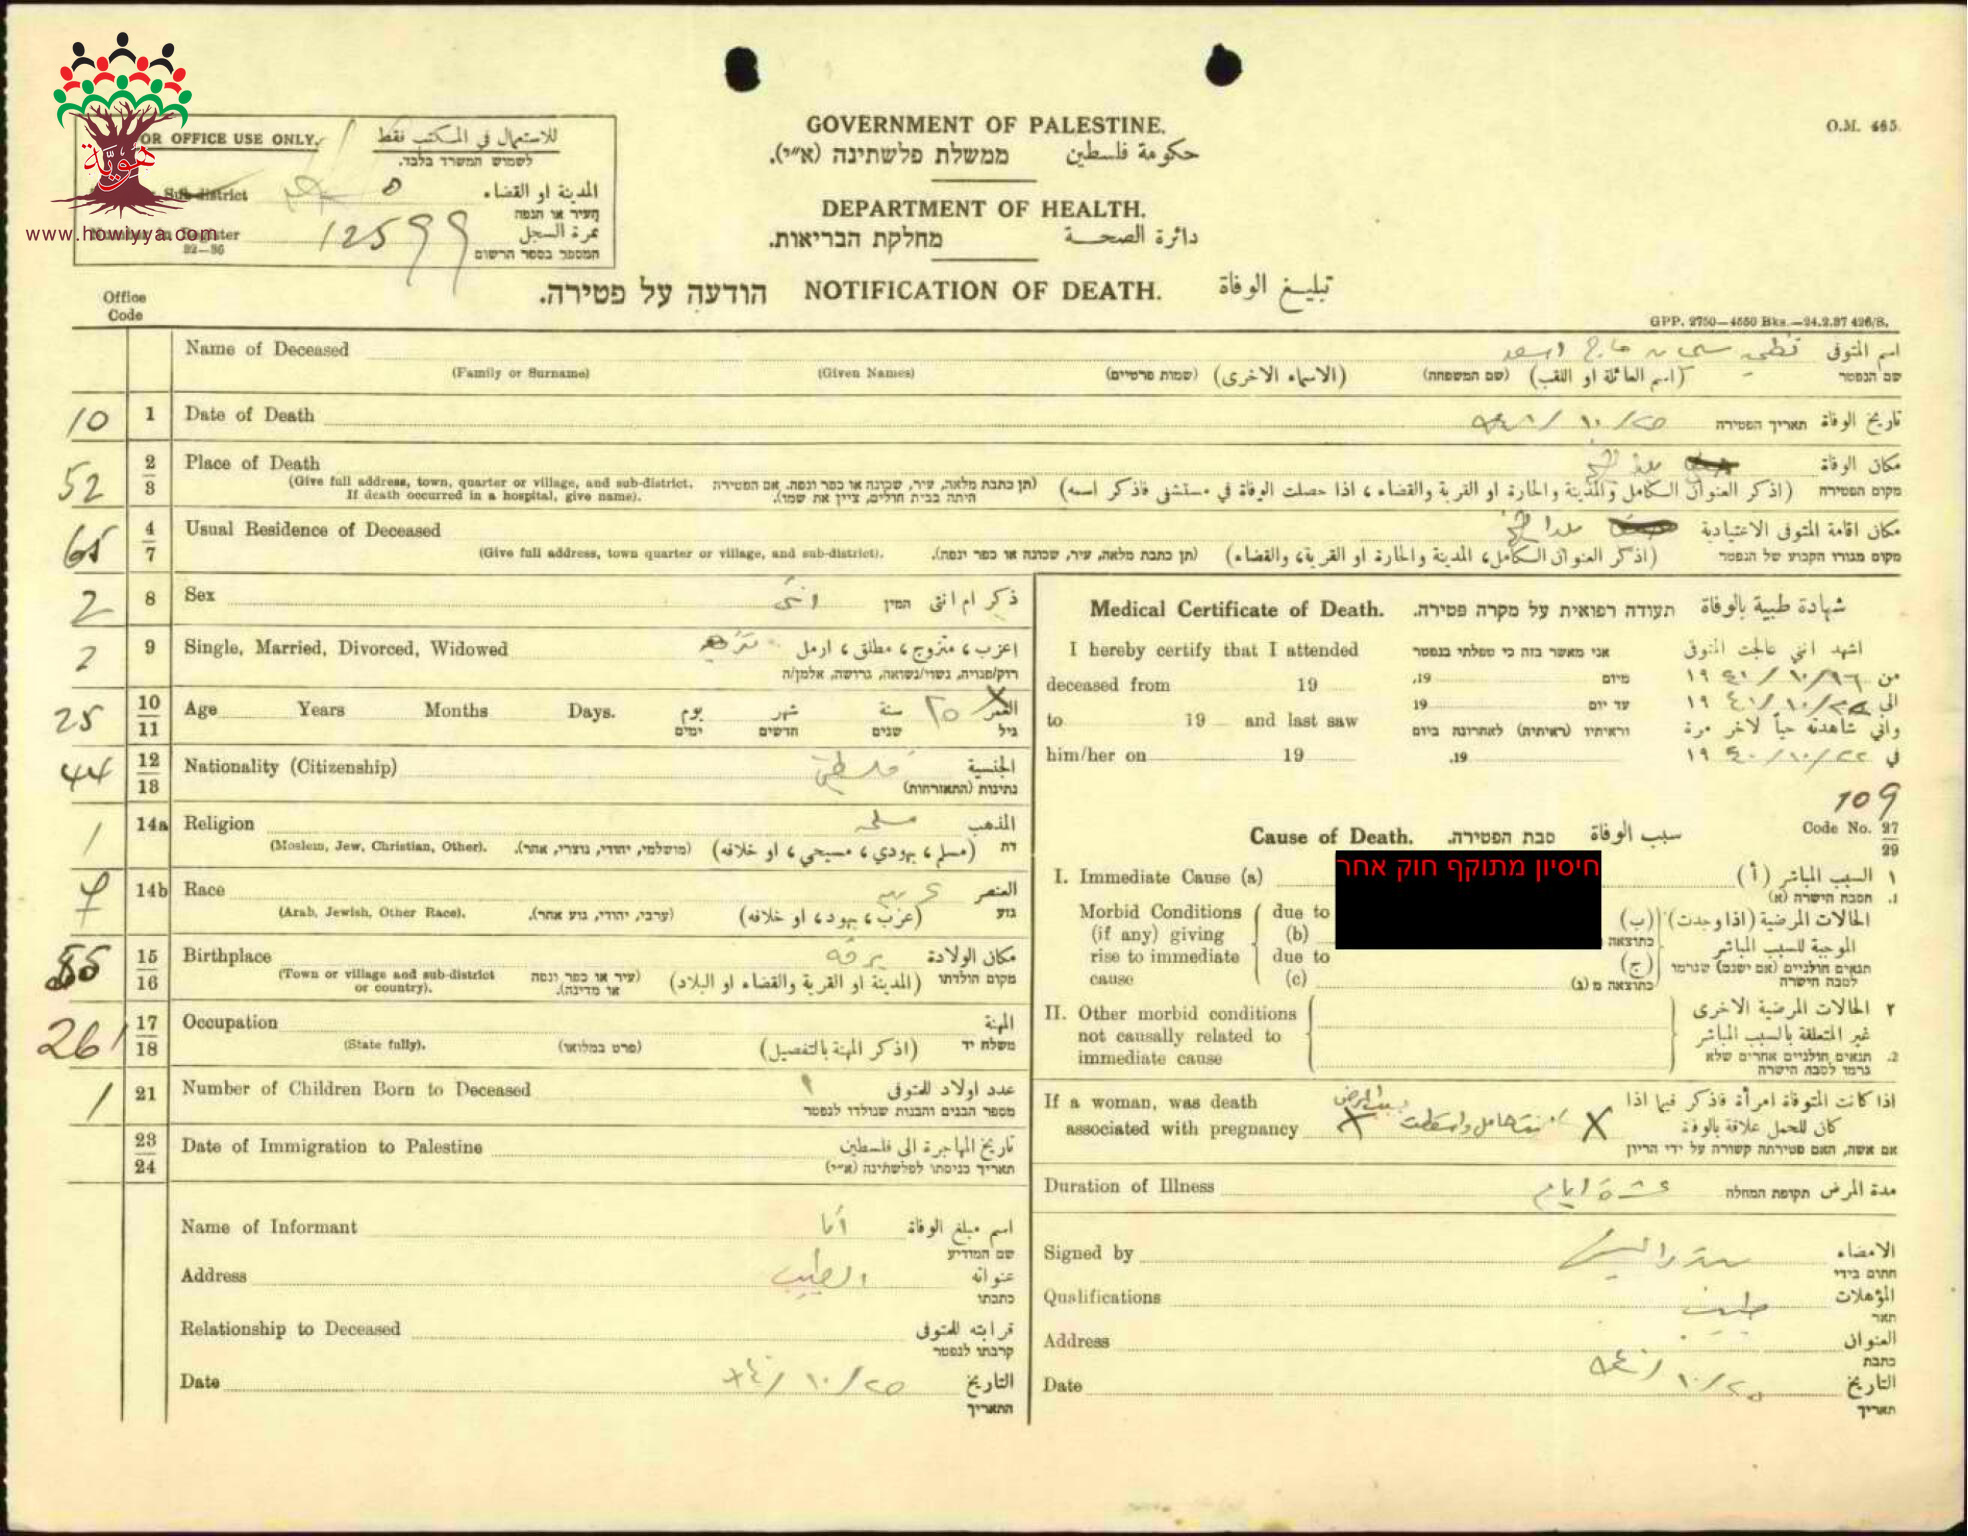 هُويّة
www.howiyya.com
FOR OFFICE USE ONLY. للاستعمال في المكتب فقط
לשמוש המשרד בלבד.
Sub-district المدينة او القضاء
העיר או הנפה
Number in Register 12599 نمرة السجل
92—96 המספר בספר הרשום
O.M. 465.
GOVERNMENT OF PALESTINE.
ממשלת פלשתינה (א״י). حكومة فلسطين
DEPARTMENT OF HEALTH.
מחלקת הבריאות. دائرة الصحة
הודעה על פטירה. NOTIFICATION OF DEATH. تبليغ الوفاة
Office
Code
GPP. 2750—4550 Bks.—24.2.37 426/S.
Name of Deceased اسم المتوفى
(Family or Surname) (Given Names) (שמות פרטיים) (الاسماء الاخرى) (שם המשפחה) (اسم العائلة او اللقب) שם הנפטר
10 1 Date of Death ٢٥/١٠/ תאריך הפטירה تاريخ الوفاة
52 2/3 Place of Death مكان الوفاة
(Give full address, town, quarter or village, and sub-district. (תן כתבת מלאה, עיר, שכונה או כפר ונפה. אם הפטירה
If death occurred in a hospital, give name). היתה בבית חולים, ציין את שמו). (اذكر العنوان الكامل والمدينة والحارة او القرية والقضاء ، اذا حصلت الوفاة في مستشفى فاذكر اسمه) מקום הפטירה
65 4/7 Usual Residence of Deceased مكان اقامة المتوفى الاعتيادية
(Give full address, town quarter or village, and sub-district). (תן כתבת מלאה, עיר, שכונה או כפר ונפה). (اذكر العنوان الكامل، المدينة والحارة او القرية، والقضاء) מקום מגורו הקבוע של הנפטר
2 8 Sex انثى המין ذكر ام انثى
2 9 Single, Married, Divorced, Widowed اعزب ، متزوج ، مطلق ، ارمل
רוק/פנויה, נשוי/נשואה, גרושה, אלמן/ה
25 10/11 Age Years Months Days. يوم شهر سنة ٢٥ العمر
ימים חדשים שנים גיל
44 12/13 Nationality (Citizenship) الجنسية
נתינות (התאזרחות)
1 14a Religion مسلمه المذهب
(Moslem, Jew, Christian, Other). (מושלמי, יהודי, נוצרי, אחר). (مسلم ، يهودي ، مسيحي ، او خلافه) דת
14b Race العنصر
(Arab, Jewish, Other Race). (ערבי, יהודי, גזע אחר). (عرب ، يهود ، او خلافه) גזע
15/16 Birthplace برقه مكان الولادة
(Town or village and sub-district (עיר או כפר ונפה (المدينة او القرية والقضاء او البلاد) מקום הולדתו
or country). או מדינה).
261 17/18 Occupation المهنة
(State fully). (פרט במלואו) (اذكر المهنة بالتفصيل) משלח יד
1 21 Number of Children Born to Deceased ١ عدد اولاد للمتوفى
מספר הבנים והבנות שנולדו לנפטר
23/24 Date of Immigration to Palestine تاريخ المهاجرة الى فلسطين
תאריך כניסתו לפלשתינה (א״י)
Name of Informant أنا اسم مبلغ الوفاة
שם המודיע
Address الطبيب عنوانه
כתבתו
Relationship to Deceased قرابته للمتوفى
קרבתו לנפטר
Date ٢٥/١٠/ التاريخ
התאריך
Medical Certificate of Death. תעודה רפואית על מקרה פטירה. شهادة طبية بالوفاة
I hereby certify that I attended אני מאשר בזה כי טפלתי בנפטר اشهد انني عالجت المتوفى
deceased from 19 19, מיום من
to 19 and last saw 19 עד יום الى
וראיתיו (ראיתיה) לאחרונה ביום واني شاهدته حياً لآخر مرة
him/her on 19 19. في
109
Cause of Death. סבת הפטירה. سبب الوفاة Code No. 27/29
I. Immediate Cause (a) חיסיון מתוקף חוק אחר ١ السبب المباشر (أ)
1. הסבה הישרה (א)
Morbid Conditions due to الحالات المرضية (اذا وجدت) (ب)
(if any) giving (b) כתוצאה الموجبة للسبب المباشر
rise to immediate due to תנאים חולניים (אם ישנם) שגרמו (ج)
cause (c) כתוצאה מ (ג) לסבה הישרה
II. Other morbid conditions ٢ الحالات المرضية الاخرى
not causally related to غير المتعلقة بالسبب المباشر
immediate cause 2. תנאים חולניים אחרים שלא
גרמו לסבה הישרה
If a woman, was death اذا كانت المتوفاة امرأة فاذكر فيما اذا
associated with pregnancy كان للحمل علاقة بالوفاة
אם אשה, האם פטירתה קשורה על ידי הריון
Duration of Illness عشرة ايام תקופת המחלה مدة المرض
Signed by الامضاء
חתום בידי
Qualifications طبيب المؤهلات
תאר
Address العنوان
כתבת
Date ٢٥/١٠/ التاريخ
תאריך